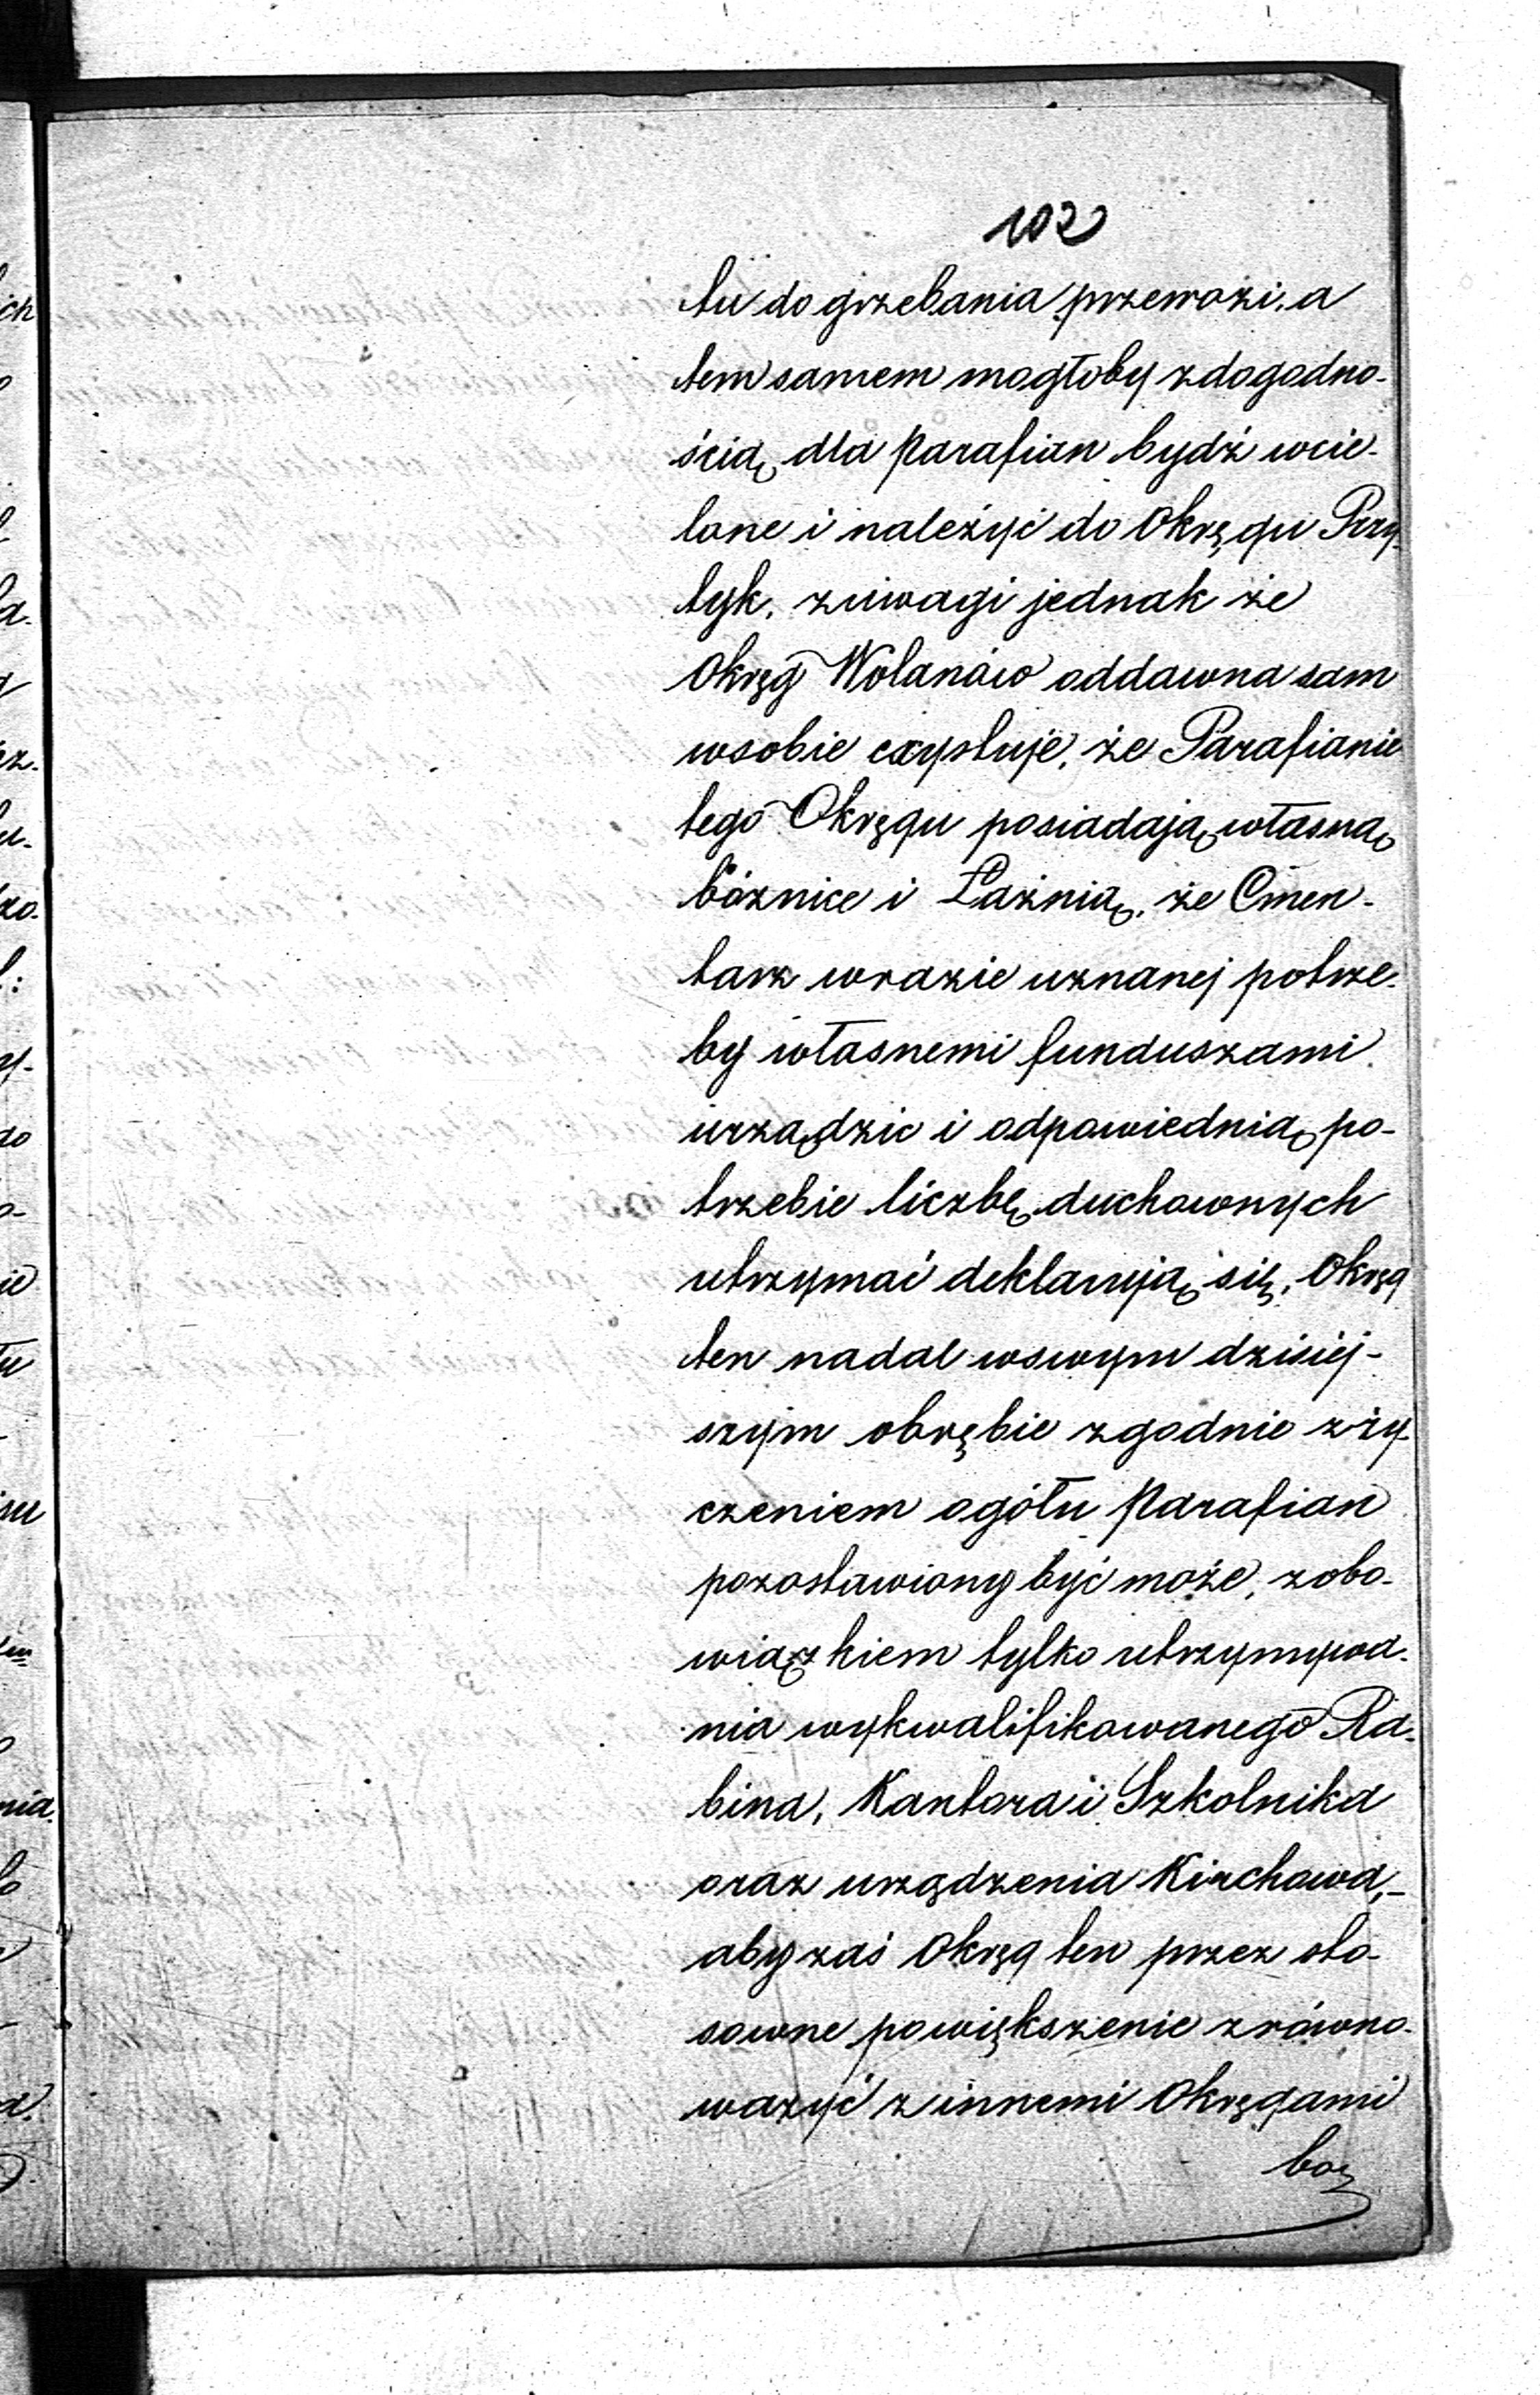 102
tu do grzebania przewozi. a
tem samem mogłoby z dogodno-
ścią dla Parafian bydź wcie-
lone i należyć do Okręgu Przy-
tyk, z uwagi jednak że
Okręg Wolanów oddawna sam
w sobie exystuje, że Parafianie
tego Okręgu posiadają własną
bóżnice i Łaźnią, że Cmen-
tarz w razie uznanej potrze-
by własnemi funduszami
urządzic i odpowiednią po-
trzebie liczbę duchownych
utrzymać deklarują się, Okręg
ten nadal w swym dzisiéj-
szym obrębie zgodnie z ży-
czeniem ogółu Parafian
pozostawiony być może, z obo-
wiązkiem tylko utrzymywa-
nia wykwalifikowanego Ra-
bina, Kantora i Szkolnika
oraz urządzenia Kirchowa,-
aby zaś Okręg ten przez sto-
sowne powiększenie zrówno-
ważyć z innemi Okręgami